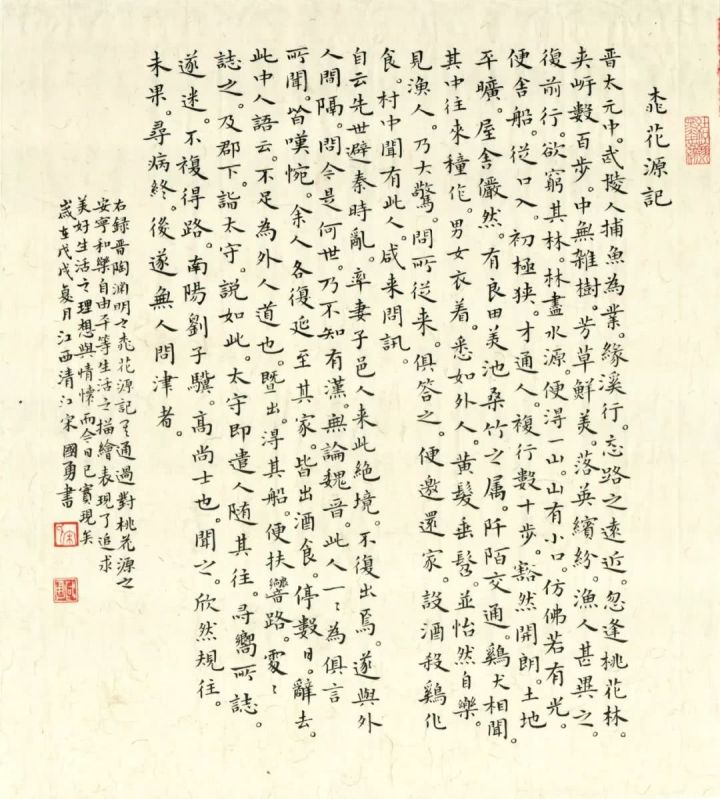 桃花源記
晋太元中。武陵人捕魚為業。緣溪行。忘路之遠近。忽逢桃花林。
夾岸數百步。中無雜樹。芳草鮮美。落英繽紛。漁人甚異之。
復前行。欲窮其林。林盡水源。便得一山。山有小口。仿佛若有光。
便舍船。從口入。初極狹。才通人。複行數十步。豁然開朗。土地
平曠。屋舍儼然。有良田美池桑竹之属。阡陌交通。鷄犬相聞。
其中往來種作。男女衣着。悉如外人。黄髮垂髫。並怡然自樂。
見漁人。乃大驚。問所從来。俱答之。便邀還家。設酒殺鷄作
食。村中聞有此人。咸来問訊。
自云先世避秦時亂。率妻子邑人来此絶境。不復出焉。遂與外
人間隔。問今是何世。乃不知有漢。無論魏晋。此人一〻為俱言
所聞。皆嘆惋。余人各復延至其家。皆出酒食。停數日。辭去。
此中人語云。不足為外人道也。暨出。得其船。便扶嚮路。處〻
誌之。及郡下。詣太守。説如此。太守即遣人随其往。尋嚮所誌。
遂迷。不複得路。南陽劉子驥。高尚士也。聞之。欣然規往。
未果。尋病終。後遂無人問津者。
右録晋陶渊明之桃花源記是通過對桃花源之
安寧和樂自由平等生活之描繪表現了追求
美好生活之理想與情懷而今日已實現矣
歲在戊戌夏月江西清江宋國勇書